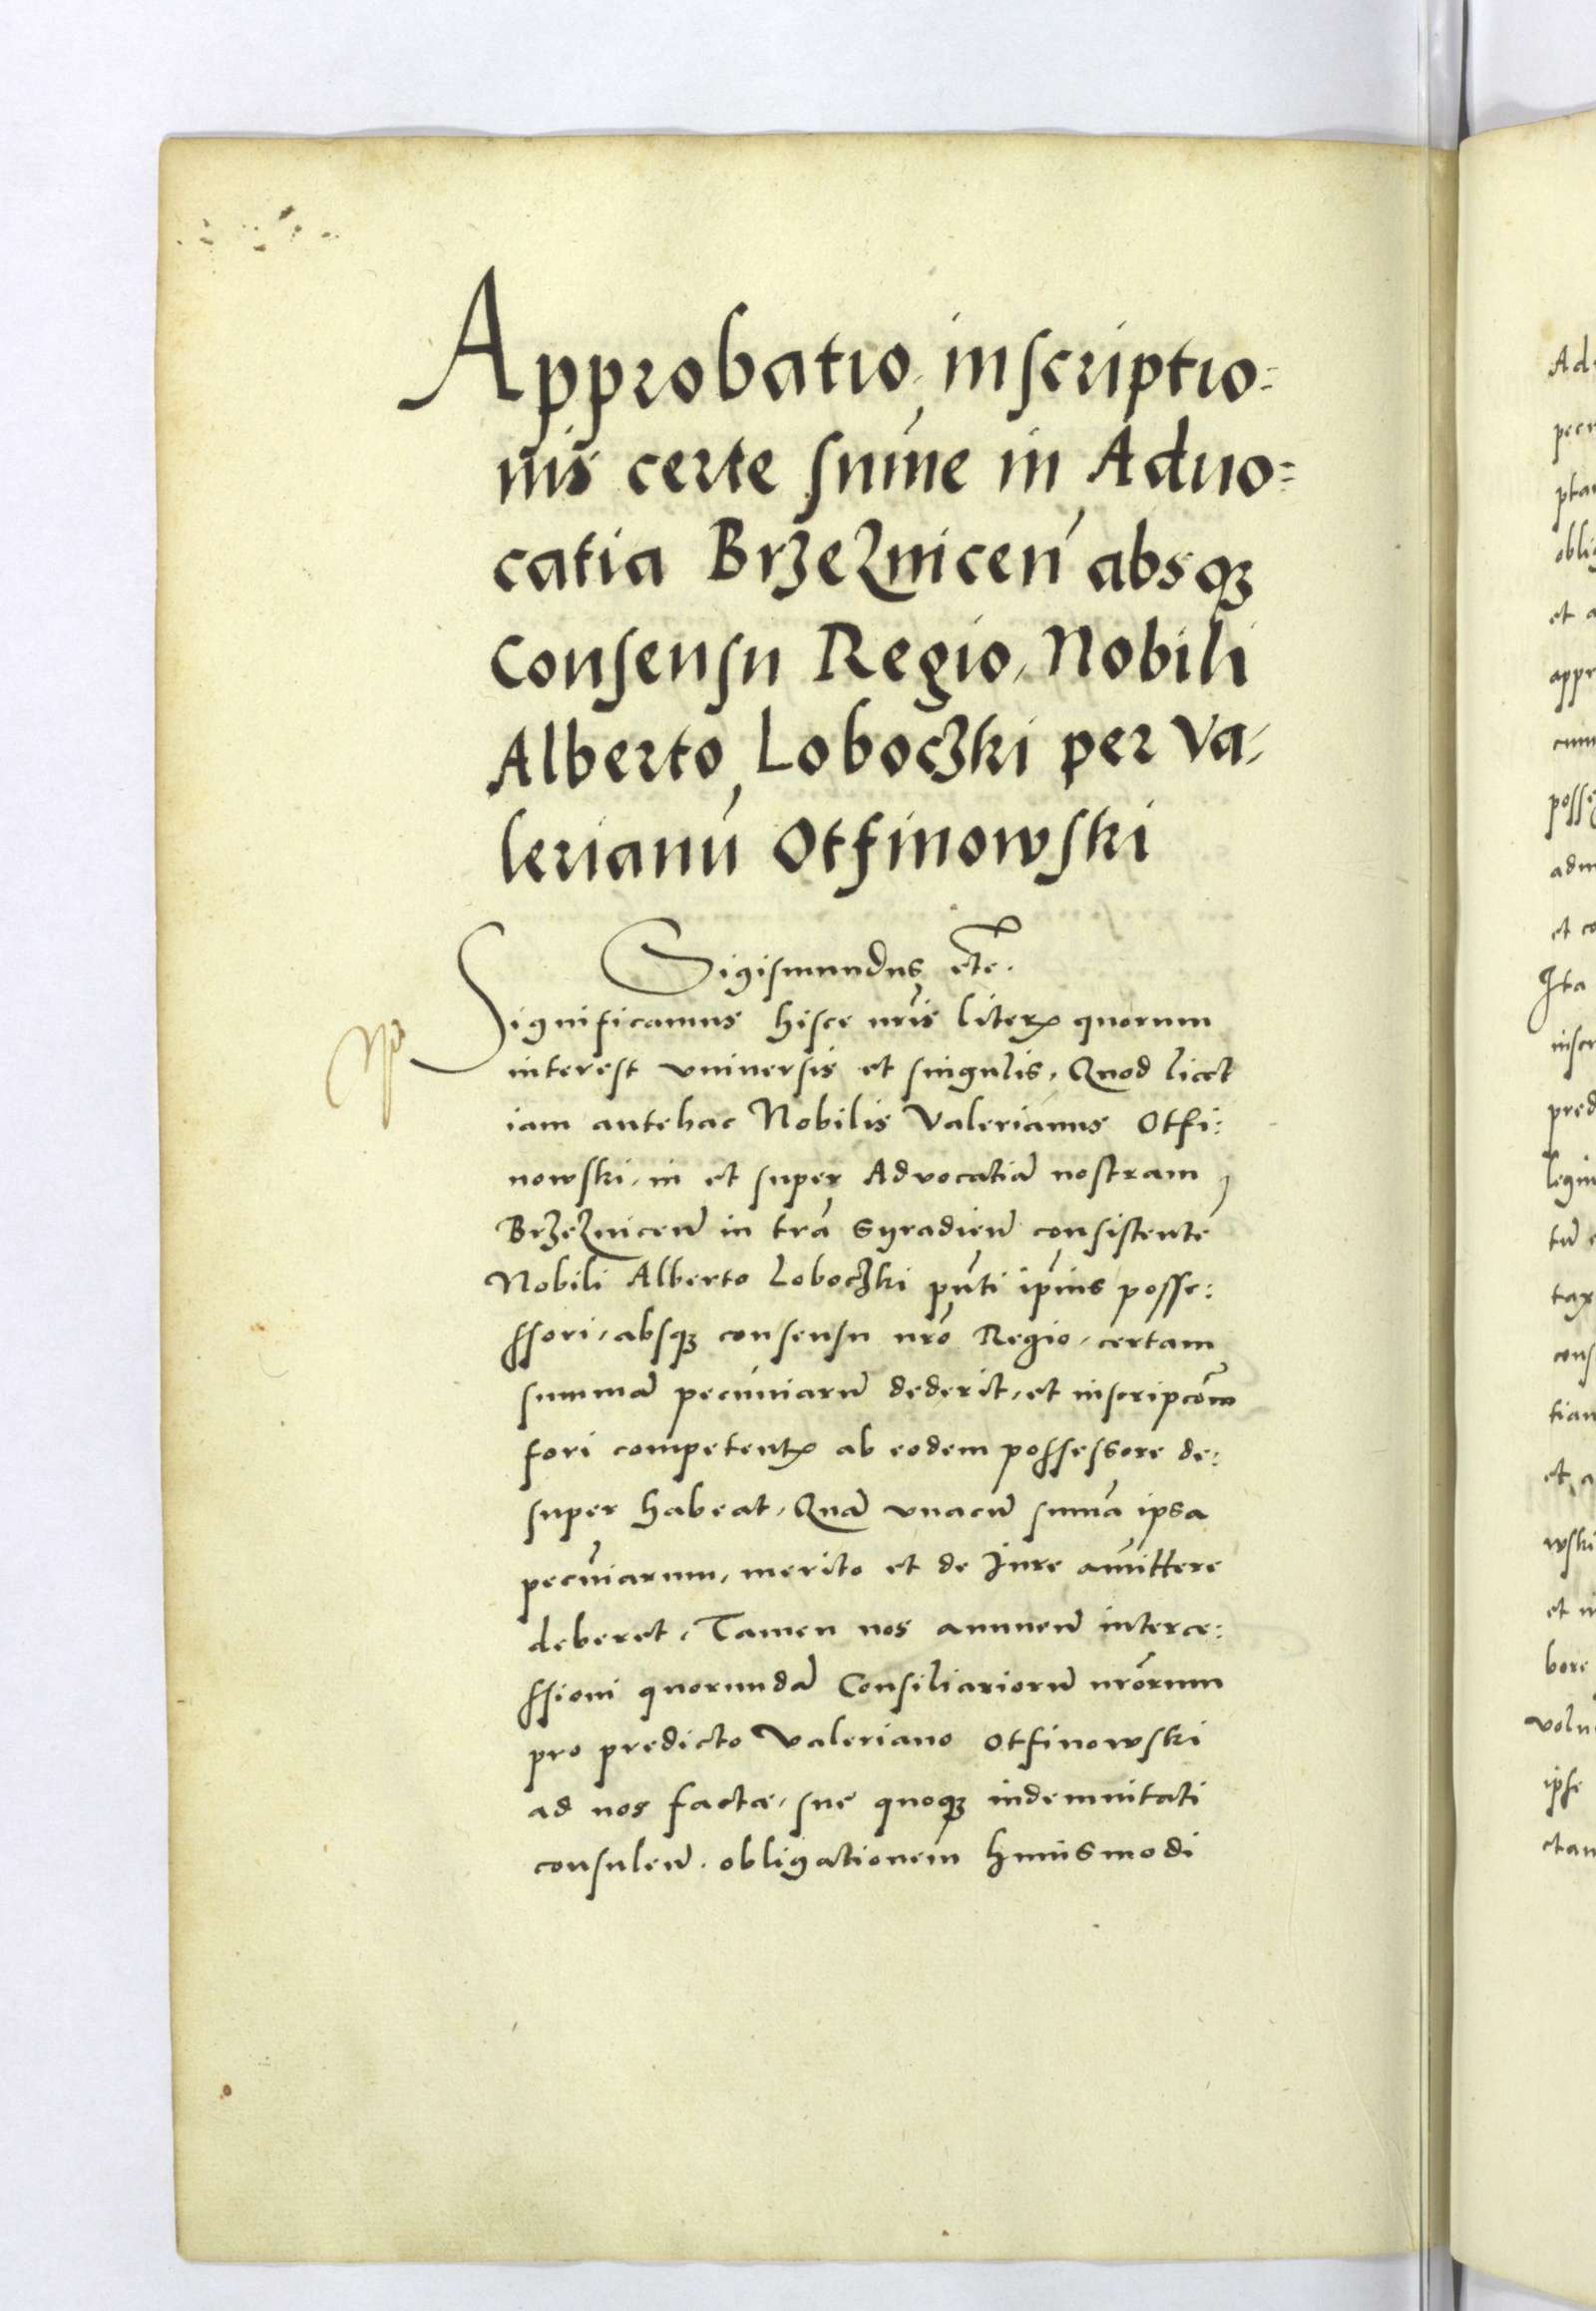 Approbatio, inscriptio:
nis certe sum̄e in Aduo:
catia Brzeznicen̄ absqꝫ
Consensu Regio, Nobili
Alberto Loboczki per Va,
lerianū Otfinowski
Sigismundus etc̄.
Significamus hisce nr̄is literꝭ quorum
interest vniuersis et singulis, Quod licet
iam antehac Nobilis Valerianus Otfi:
nowski, in et super Advocatiā nostram
Brzeznicen̄ in tr̄a Syradien̄ consistentē
Nobili Alberto Loboczki pn̄ti ip̄ius posse:
ssori, absqꝫ consensu nr̄o Regio, certam
summā pecuniarū dederit, et inscripcōm
fori competentꝭ ab eodem possessore de:
super habeat, Quā vnacū sum̄a ipsa
pecuniarum, merito et de Iure amittere
deberet, Tamen nos annuen̄ interce:
ssioni quorundā Consiliariorū nr̄orum
pro predicto Valeriano Otfinowski
ad nos factæ, sue quoqꝫ indemnitati
consulen̄. obligationem huiusmodi
Ad
et a
appr
cum
posse
et co
Ita
inscr
pred
cons
et a
wski
bore
ipse